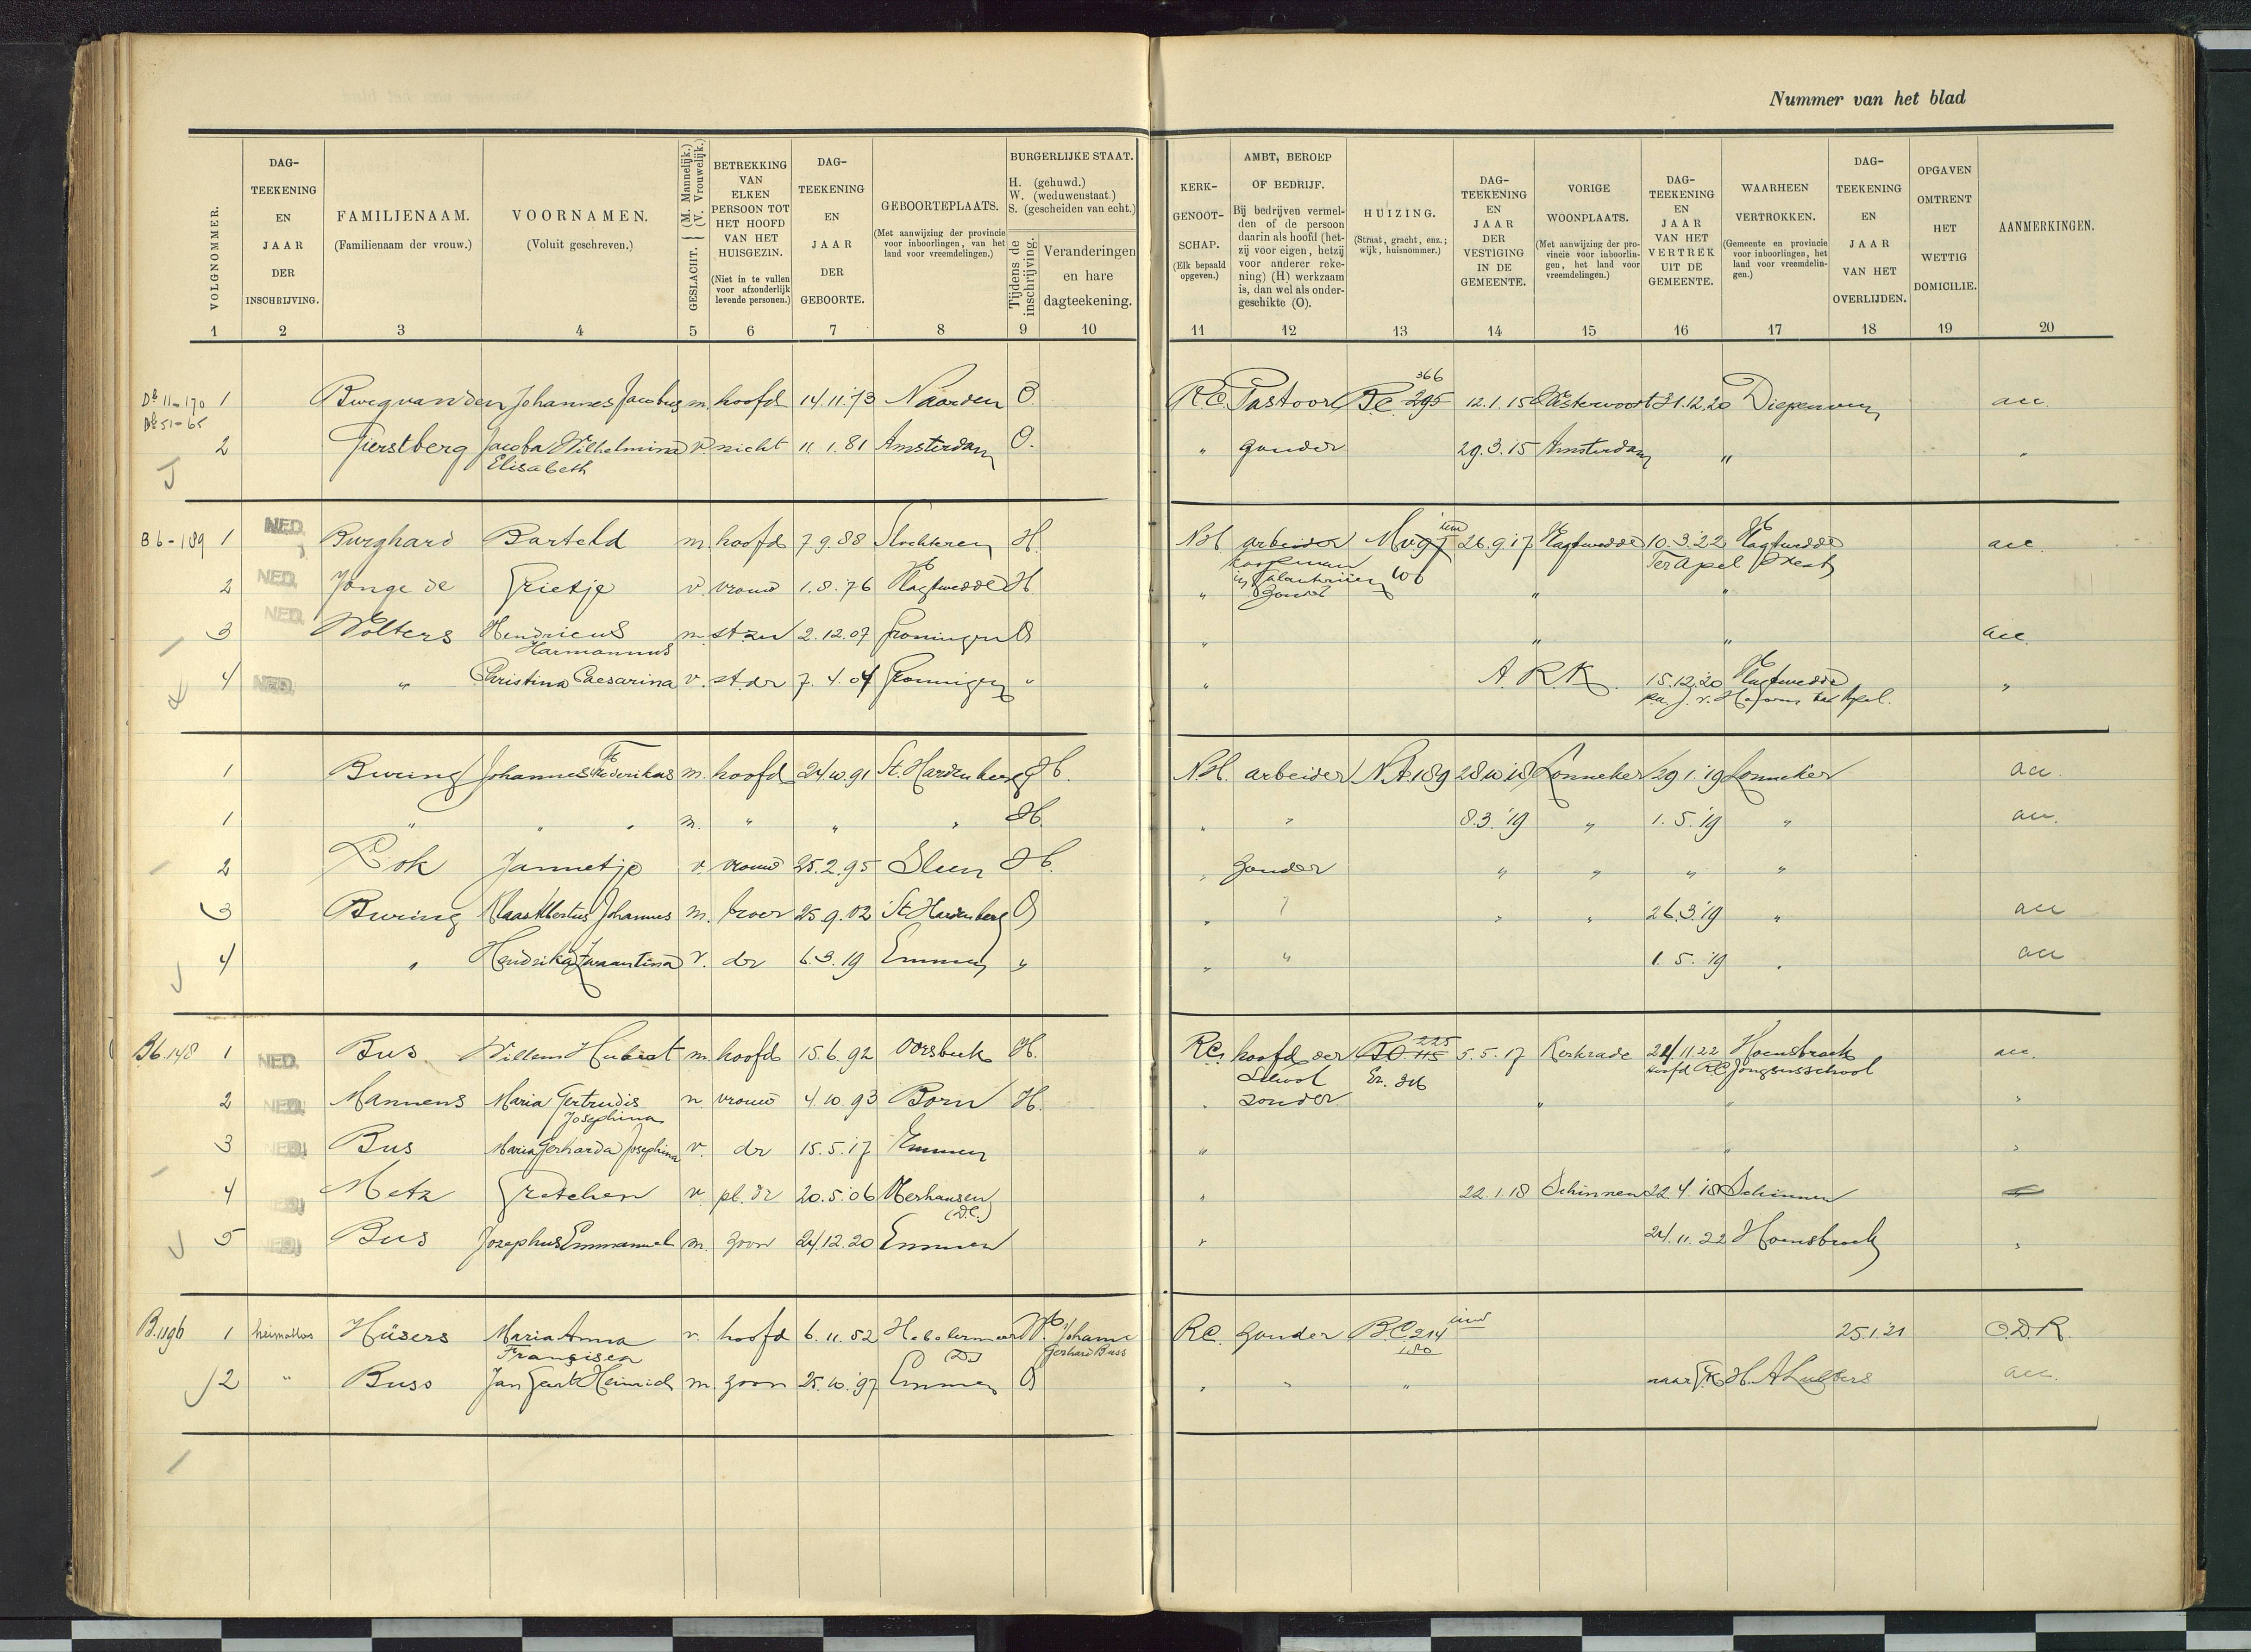 Nummer van het blad
VOLGNOMMER. DAG- TEEKENING EN JAAR DER INSCHRIJVING. FAMILIENAAM. (Familienaam der vrouw.) VOORNAMEN. (Voluit geschreven.) GESLACHT. (M. Mannelijk.) (V. Vrouwelijk.) BETREKKING VAN ELKEN PERSOON TOT HET HOOFD VAN HET HUISGEZIN. (Niet in te vullen voor afzonderlijk levende personen.) DAG- TEEKENING EN JAAR DER GEBOORTE. GEBOORTEPLAATS. (Met aanwijzing der provincie voor inboorlingen, van het land voor vreemdelingen.) BURGERLIJKE STAAT. H. (gehuwd.) W. (weduwenstaat.) S. (gescheiden van echt.) Tijdens de inschrijving. Veranderingen en hare dagteekening.
KERK- GENOOT- SCHAP. (Elk bepaald opgeven.) AMBT, BEROEP OF BEDRIJF. Bij bedrijven vermelden of de persoon daarin als hoofd (hetzij voor eigen, hetzij voor anderer rekening) (H) werkzaam is, dan wel als ondergeschikte (O). HUIZING. (Straat, gracht, enz.; wijk, huisnommer.) DAG- TEEKENING EN JAAR DER VESTIGING IN DE GEMEENTE. VORIGE WOONPLAATS. (Met aanwijzing der provincie voor inboorlingen, het land voor vreemdelingen.) DAG- TEEKENING EN JAAR VAN HET VERTREK UIT DE GEMEENTE. WAARHEEN VERTROKKEN. (Gemeente en provincie voor inboorlingen, het land voor vreemdelingen.) DAG- TEEKENING EN JAAR VAN HET OVERLIJDEN. OPGAVEN OMTRENT HET WETTIG DOMICILIE. AANMERKINGEN.
1 2 3 4 5 6 7 8 9 10 11 12 13 14 15 16 17 18 19 20
366
1 Burg van den Johannes Jacobus m. hoofd 14.11.73 Naarden O. R.C. Pastoor B.C. 295 12.1.15 Westervoort 31.12.20 Diepenveen acc.
2 Jacoba Wilhelmina v nicht 11.1.81 Amsterdam O. " zonder 29.3.15 Amsterdam " "
Elisabeth
B 6-189 1 NED. Burghard Barteld m. hoofd 7.9.88 Slochteren H. N.H. arbeider 26.9.17 Vlagtwedde 10.3.22 Vlagtwedde acc
koopman Ter Apel
2 NED. Jonge de Grietje v. vrouw 1.8.76 Vlagtwedde H " " "
3 NED. Wolters Hendricus m. st. zn 2.12.07 Groningen O " " " acc.
Harmannus
4 NED. " Christina Caesarina v. st. dr 7.4.04 Groningen " " A.R.K. 15.12.20 Vlagtwedde "
1 Buring Johannes Frederikus m. hoofd 24.10.91 St. Hardenberg H. N.H. arbeider N.A. 189 28.10.18 Lonneker 29.1.19 Lonneker acc.
1 " " " m. " " " H. " " 8.3.'19 " 1.5.'19 " acc.
2 Kok Jannetje v. vrouw 25.2.95 Sleen H. " zonder " " " "
3 Buring Klaas Albertus Johannes m. broer 25.9.02 St. Hardenberg O " " " " 26.3.'19 " acc
4 " Hendrika Zwaantina v. dr 6.3.19 Emmen " " " 1.5.'19 " acc
225
B6.148 1 NED. Bus Willem Hubert m. hoofd 15.6.92 Oirsbeek H. R.C. hoofd der 5.5.17 Kerkrade 24.11.22 Hoensbroek acc.
School hoofd RC Jongensschool
2 NED. Mannens Maria Gertrudis v. vrouw 4.10.93 Born H. " zonder " " "
Josephina
3 NED. Bus Maria Gerharda Josephina v. dr 15.5.17 Emmen " " "
4 NED. Metz Gretchen v. pl. dr 20.5.06 Oberhausen " 22.1.18 Schinnen 22.4.18 Schinnen
5 NED. Bus Josephus Emmanuel m. zoon 24.12.20 Emmen " 24.11.22 Hoensbroek "
B.1196 1 heimatlos Hüsers Maria Anna v. hoofd 6.11.52 W. Johann R.C. zonder B.C. 214 25.1.21 O.D.R.
Gerhard Buss
2 " Buss Jan Heinrich m zoon 25.10.'97 Emmen O " " " naar H.A. acc.